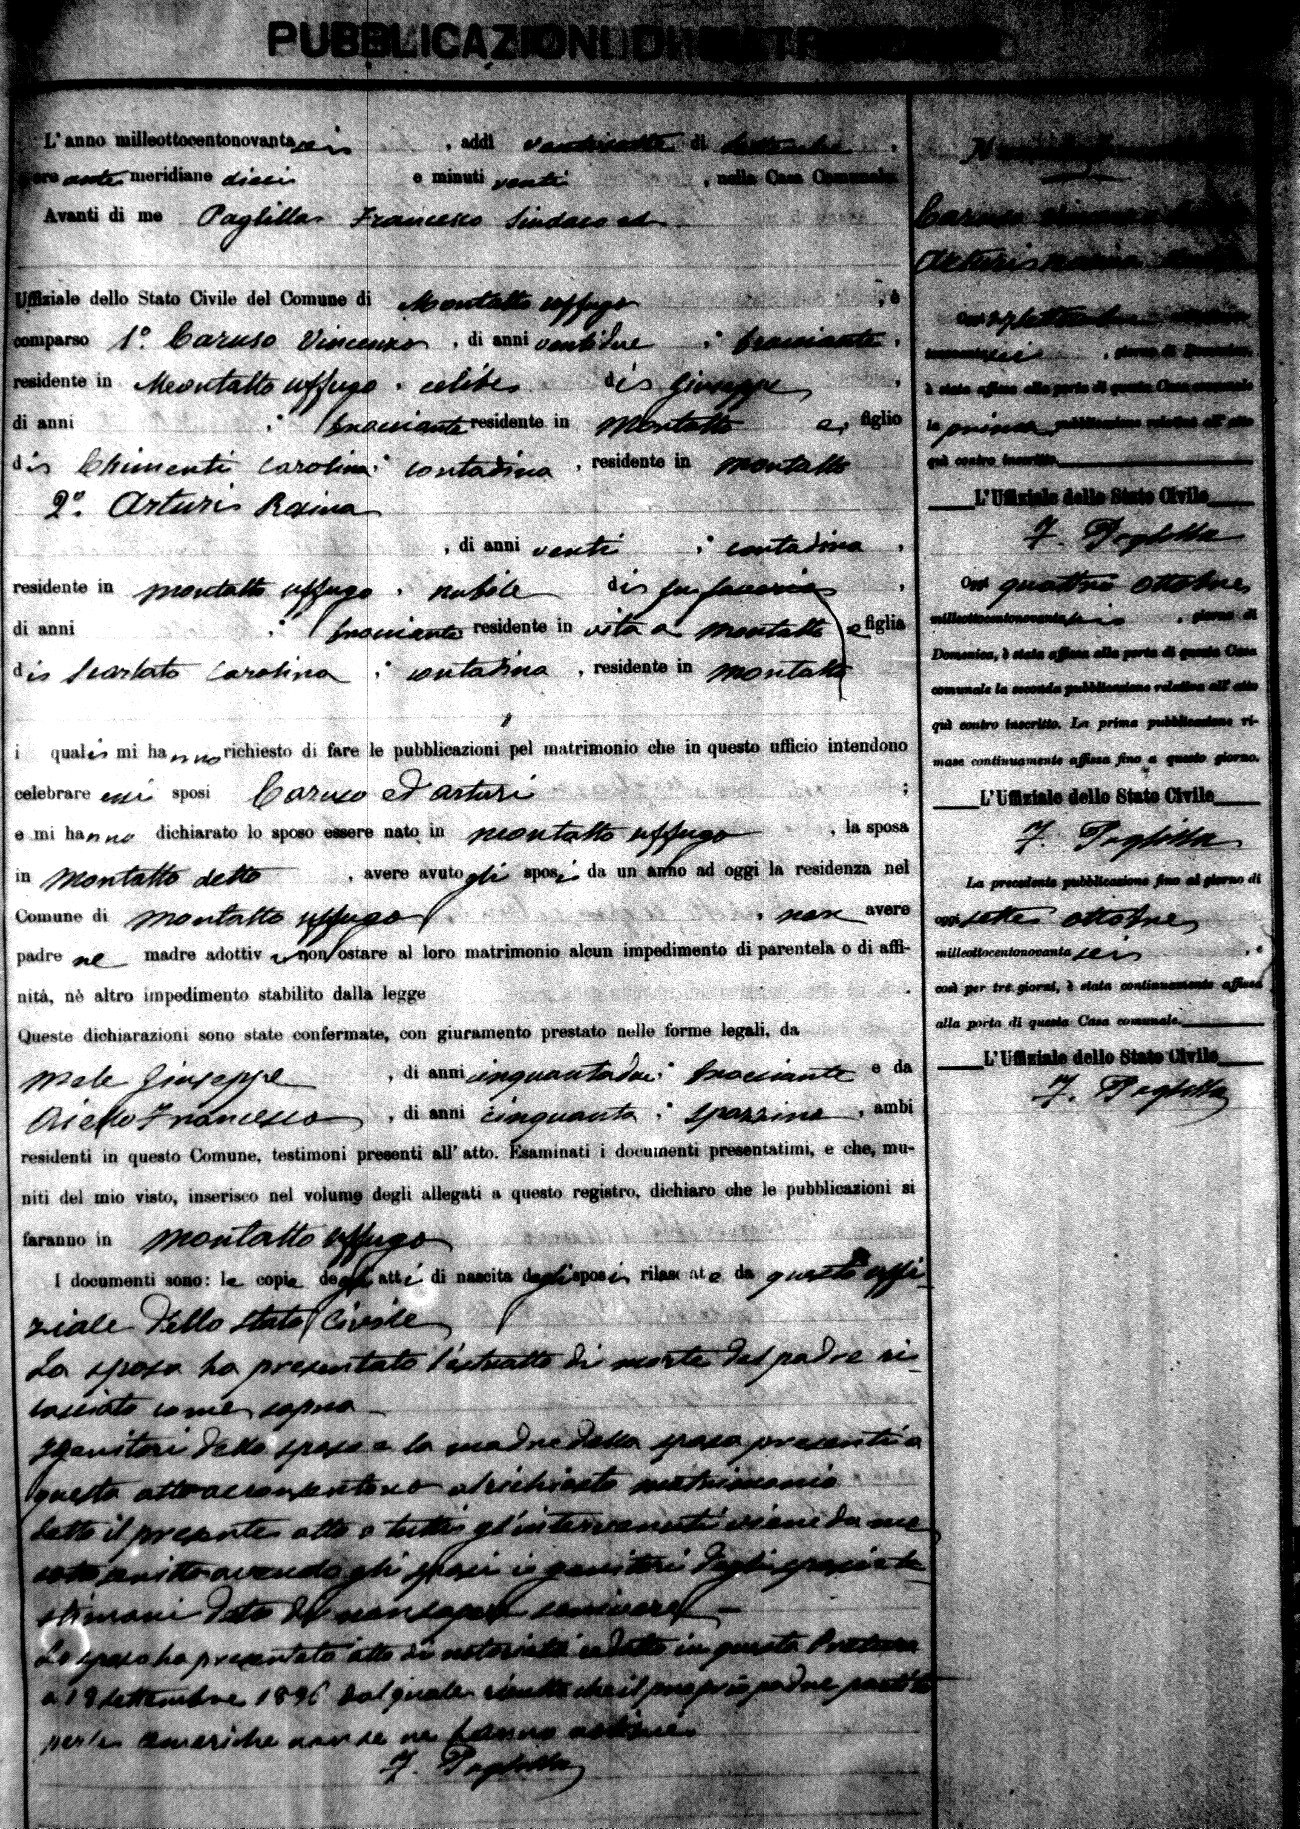 PUBBLICAZIONI DI MATRIMONIO
L' anno milleottocentonovanta sei , addì ventisette di settembre ,
ore ante meridiane dieci e minuti venti , nella Casa Comunale
Avanti di me Paglilla Francesco Sindaco ed
Uffiziale dello Stato Civile del Comune di Montalto uffugo , è
comparso 1º. Caruso Vincenzo , di anni ventidue ; bracciante ,
residente in Montalto uffugo , celibe di Giuseppe ,
di anni ; bracciante residente in Montalto e, figlio
di Chimenti Carolina ; contadina , residente in Montalto
2º. Arturi Rosina
, di anni venti ; contadina ,
residente in Montalto uffugo , nubile di fu ,
di anni ; bracciante residente in vita a Montalto e figlia
di Scarlato Carolina ; contadina , residente in Montalto
i quali mi hanno richiesto di fare le pubblicazioni pel matrimonio che in questo ufficio intendono
celebrare essi sposi Caruso ed Arturi ;
e mi hanno dichiarato lo sposo essere nato in Montalto uffugo , la sposa
in Montalto detto , avere avuto gli sposi da un anno ad oggi la residenza nel
Comune di Montalto uffugo , non avere
padre ne madre adottivi non ostare al loro matrimonio alcun impedimento di parentela o di affi-
nità, nè altro impedimento stabilito dalla legge
Queste dichiarazioni sono state confermate, con giuramento prestato nelle forme legali, da
Mele Giuseppe , di anni cinquantadue ; bracciante e da
Aiello Francesco , di anni cinquanta ; spazzino , ambi
residenti in questo Comune, testimoni presenti all' atto. Esaminati i documenti presentatimi, e che, mu-
niti del mio visto, inserisco nel volume degli allegati a questo registro, dichiaro che le pubblicazioni si
faranno in Montalto uffugo
I documenti sono: le copie degli atti di nascita degli sposi rilasciate da questo uffi-
ziale dello stato Civile
La sposa ha presentato l'estratto di morte del padre ri-
lasciato come sopra
I genitori dello sposo e la madre della sposa presenti a
questo atto acconsentono al richiesto matrimonio
Letto il presente atto a tutti gl'intervenuti viene da me
sottoscritto avendo gli sposi i genitori degli sposi e te-
stimoni detto di non sapere scrivere
Lo sposo ha presentato atto di notorietà redatto in questa Pretura
a 19 settembre 1896 dal quale risulta che il proprio padre partito
per le Americhe non se ne hanno notizie
F. Paglilla
Caruso Vincenzo
Arturi Rosina
Oggi 27 settembre
sei , giorno di Domenica,
è stata affissa alla porta di questa Casa comunale
la prima pubblicazione relativa all' atto
quì contro inscritto
L'Uffiziale dello Stato Civile
F. Paglilla
Oggi quattro ottobre
milleottocentonovantasei , giorno di
Domenica, è stata affissa alla porta di questa Casa
comunale la seconda pubblicazione relativa all' atto
quì contro inscritto. La prima pubblicazione ri-
mase continuamente affissa fino a questo giorno.
L'Uffiziale dello Stato Civile
F. Paglilla
La precedente pubblicazione fino al giorno di
oggi sette ottobre
milleottocentonovanta sei , e
così per tre giorni, è stata continuamente affissa
alla porta di questa Casa comunale.
L'Uffiziale dello Stato Civile
F. Paglilla